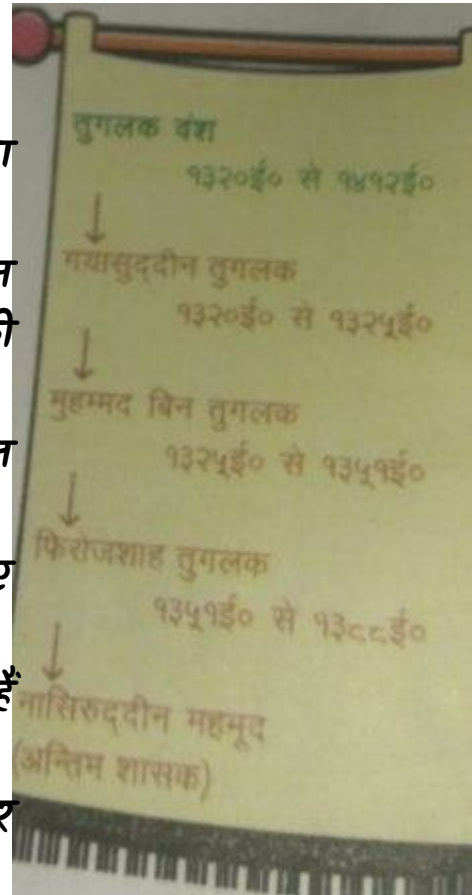 तुगलक वंश
१३२०ई० से १४१२ई०
गयासुद्दीन तुगलक
१३२०ई० से १३२५ई०
मुहम्मद बिन तुगलक
१३२५ई० से १३५१ई०
फिरोजशाह तुगलक
१३५१ई० से १३८८ई०
नासिरुद्दीन महमूद
(अन्तिम शासक)